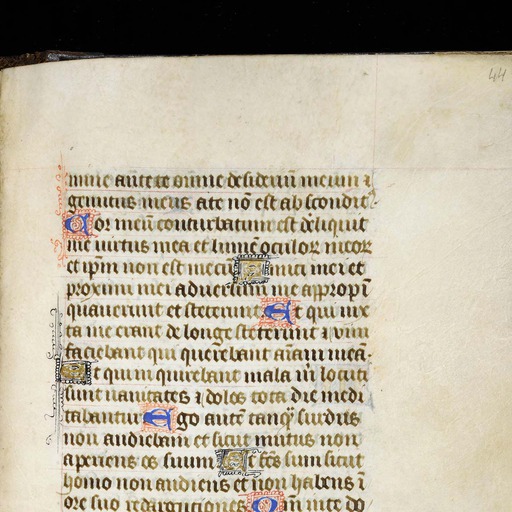 44
mine ante te omne desideriū meum ⁊
gemitus meus a te nō est abscondit
Cor meū conturbatum est deliquit
me virtus mea et lumē oculoꝝ meoꝝ
et ipm̄ non est mecū Amici mei et
proximi mei aduersum me appropī
quauerunt et steterunt Et qui iux
ta me erant de longe steterunt ⁊ vim
faciebant qui querebant aīam meā.
Et qui inquirebant mala m̄ locuti
sunt vanitates ⁊ dolos tota die medi
tabantur Ego autē tanqȝ surdus
non audiebam et sicut mutus non
aperiens os suum Et fcūs sum sicut
homo non audiens et non habens ī
ore suo redargutiones Qm̄ in te do